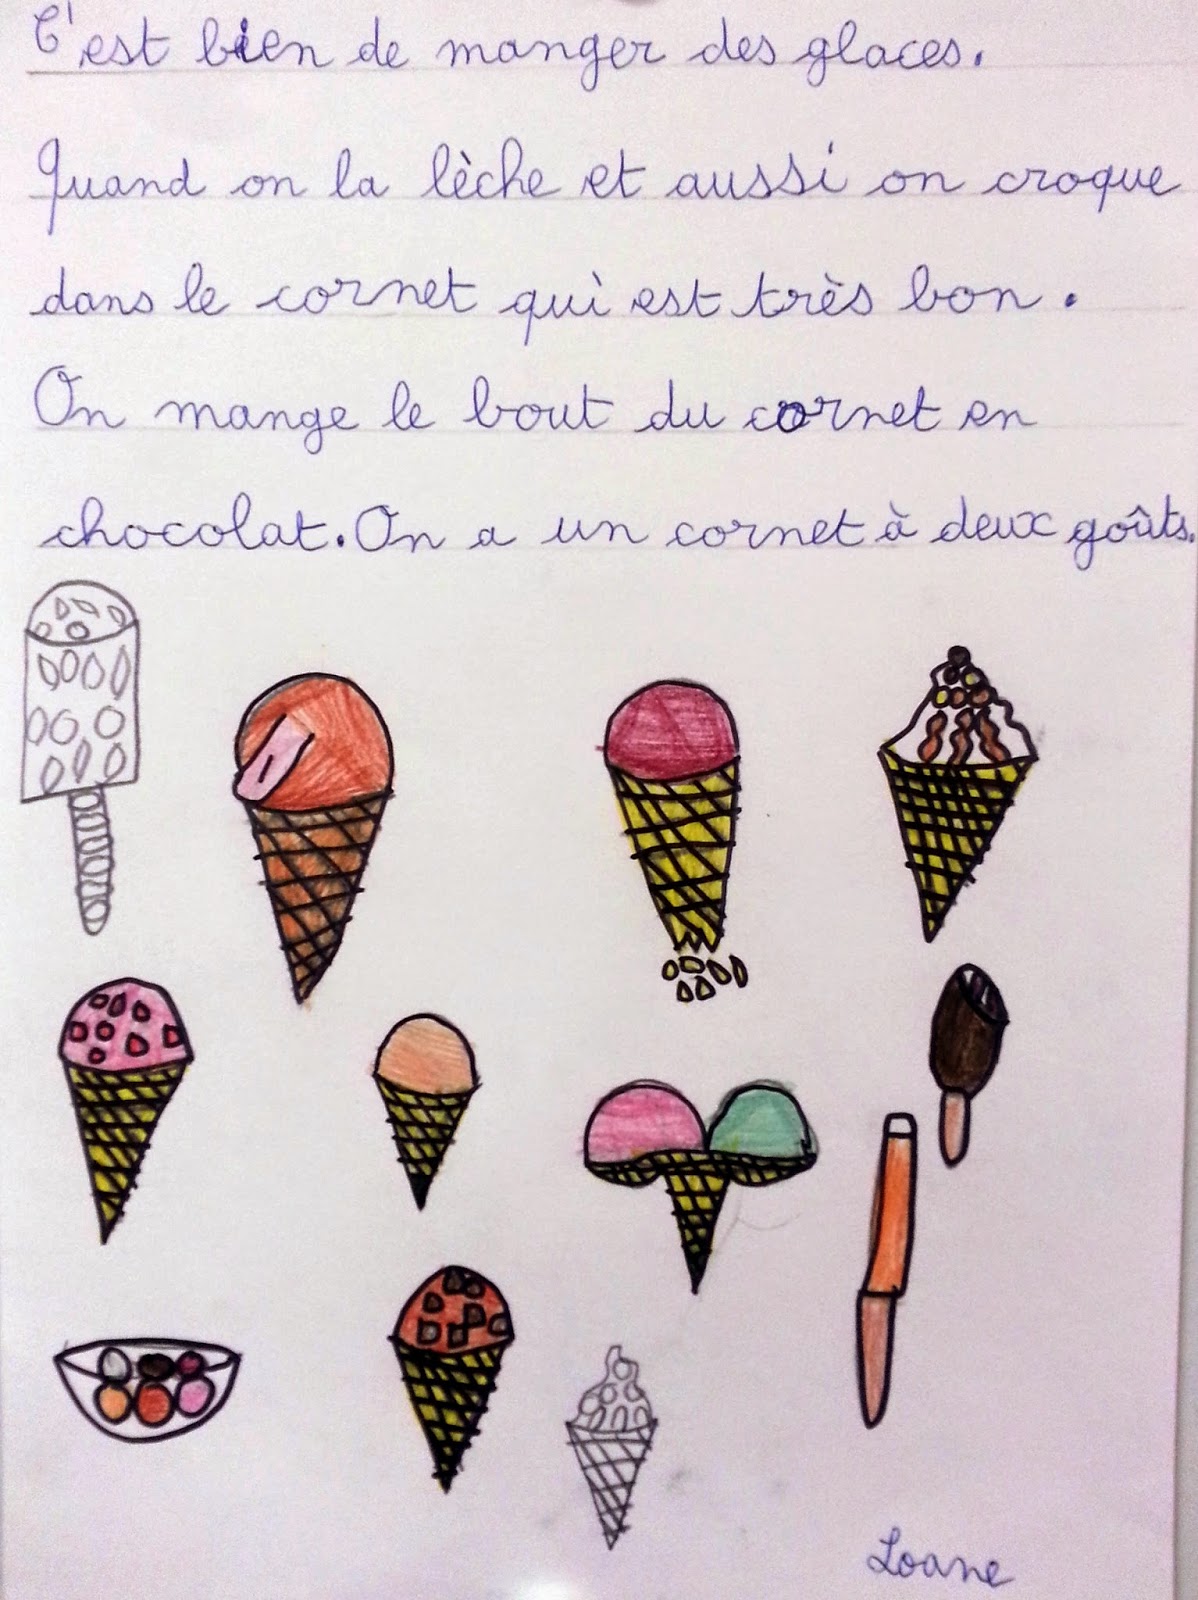 C'est bien de manger des glaces.
Quand on la lèche et aussi on croque
dans le cornet qui est très bon.
On mange le bout du cornet en
chocolat. On a un cornet à deux goûts.
Loane